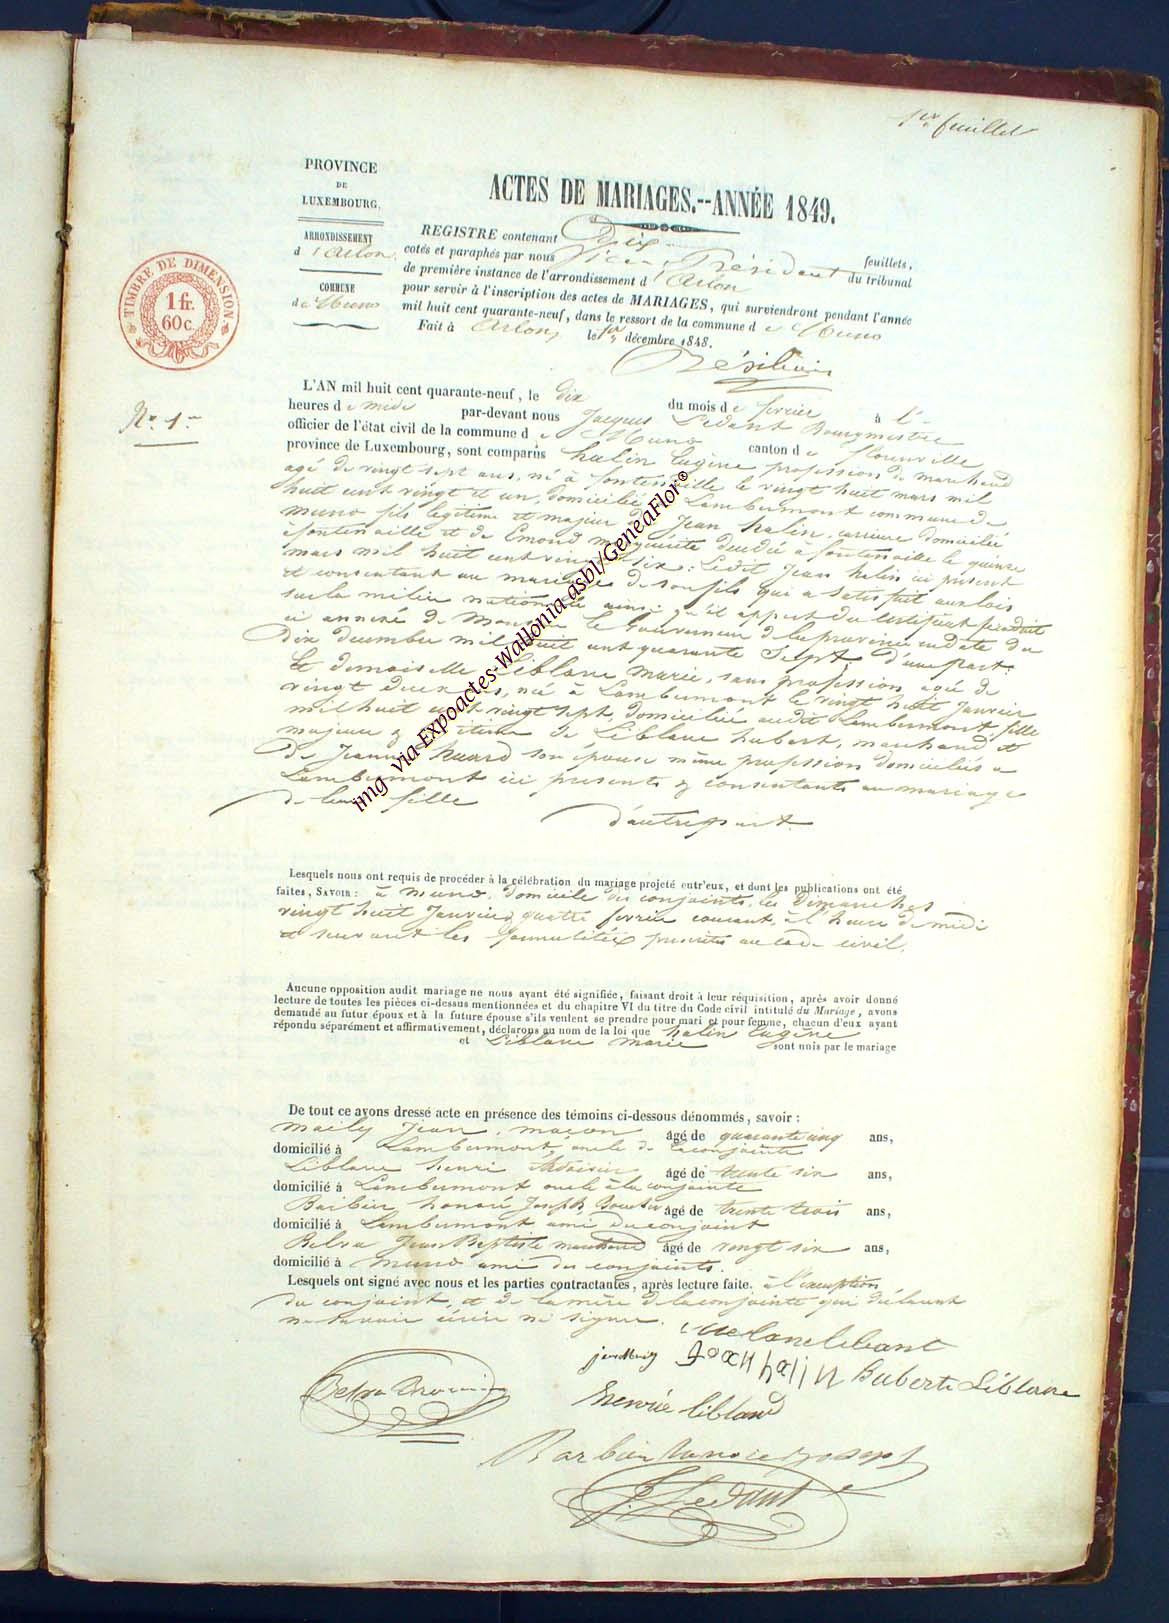 1er feuillet
PROVINCE
DE
LUXEMBOURG.
ARRONDISSEMENT
d'Arlon
COMMUNE
de Muno
TIMBRE DE DIMENSION
1 fr.
60 c.
ACTES DE MARIAGES.--ANNÉE 1849.
REGISTRE contenant Dix feuillets,
cotés et paraphés par nous Vice Président du tribunal
de première instance de l'arrondissement d'Arlon
pour servir à l'inscription des actes de MARIAGES, qui surviendront pendant l'année
mil huit cent quarante-neuf, dans le ressort de la commune de Muno
Fait à Arlon, le 1er décembre 1848.
No 1er
L'AN mil huit cent quarante-neuf, le dix du mois de fevrier à l'
heures de midi par-devant nous Jacques Ledant Bourgmestre
officier de l'état civil de la commune de Muno canton de florenville
province de Luxembourg, sont comparus halin Eugène profession de marchand
agé de vingt sept ans, né à fontenaille le vingt huit mars mil
huit cent vingt et un, domicilié Lambermont commune de
muno fils légitime et majeur de Jean halin, domicilié
à fontenaille et de Emond marguerite décédée a fontenaille le quinze
mars mil huit cent vingt six : Ledit Jean halin ici présent
et consentant au mariage de son fils qui a satisfait aux lois
sur la milice nationale ainsi qu'il appert du certificat produit
ci annexé de Monsieur le Gouverneur de la province en date du
dix decembre mil huit cent quarante sept d'une part.
Et demoiselle Liblanc Marie, sans profession, agée de
vingt deux ans, née à Lambermont le vingt huit Janvier
mil huit cent vingt sept, domiciliée audit Lambermont, fille
majeure légitime de Liblanc hubert, marchand, et
de Jeanne huard son épouse même profession domiciliés a
Lambermont ici presents & consentants au mariage
de leur fille d'autre part.
Lesquels nous ont requis de procéder à la célébration du mariage projeté entr'eux, et dont les publications ont été
faites, SAVOIR : à Muno, domicile des conjoints, les Dimanches
vingt huit Janvier & quatre fevrier courant, à l'heure de midi
et suivant les formalités prescrites au code civil.
Aucune opposition audit mariage ne nous ayant été signifiée, faisant droit à leur réquisition, après avoir donné
lecture de toutes les pièces ci-dessus mentionnées et du chapitre VI du titre du Code civil intitulé du Mariage, avons
demandé au futur époux et à la future épouse s'ils veulent se prendre pour mari et pour femme, chacun d'eux ayant
répondu séparément et affirmativement, déclarons au nom de la loi que halin Eugène
et Liblanc marie sont unis par le mariage
De tout ce avons dressé acte en présence des témoins ci-dessous dénommés, savoir :
Jean, maçon âgé de quarante cinq ans,
domicilié à Lambermont, oncle de la conjointe
Liblanc henri âgé de trente six ans,
domicilié à Lambermont oncle à la conjointe
Barbier honoré Joseph âgé de trente trois ans,
domicilié à Lambermont ami du conjoint
Jean Baptiste marchand âgé de vingt six ans,
domicilié à muno ami des conjoints.
Lesquels ont signé avec nous et les parties contractantes, après lecture faite. à l'exception
du conjoint et de la mère de la conjointe qui déclarent
ne savoir écrire ni signer.
halin
Liblanc
liblanc
J. Ledant
img via Expoactes-Wallonia asbl/GeneaFlor©